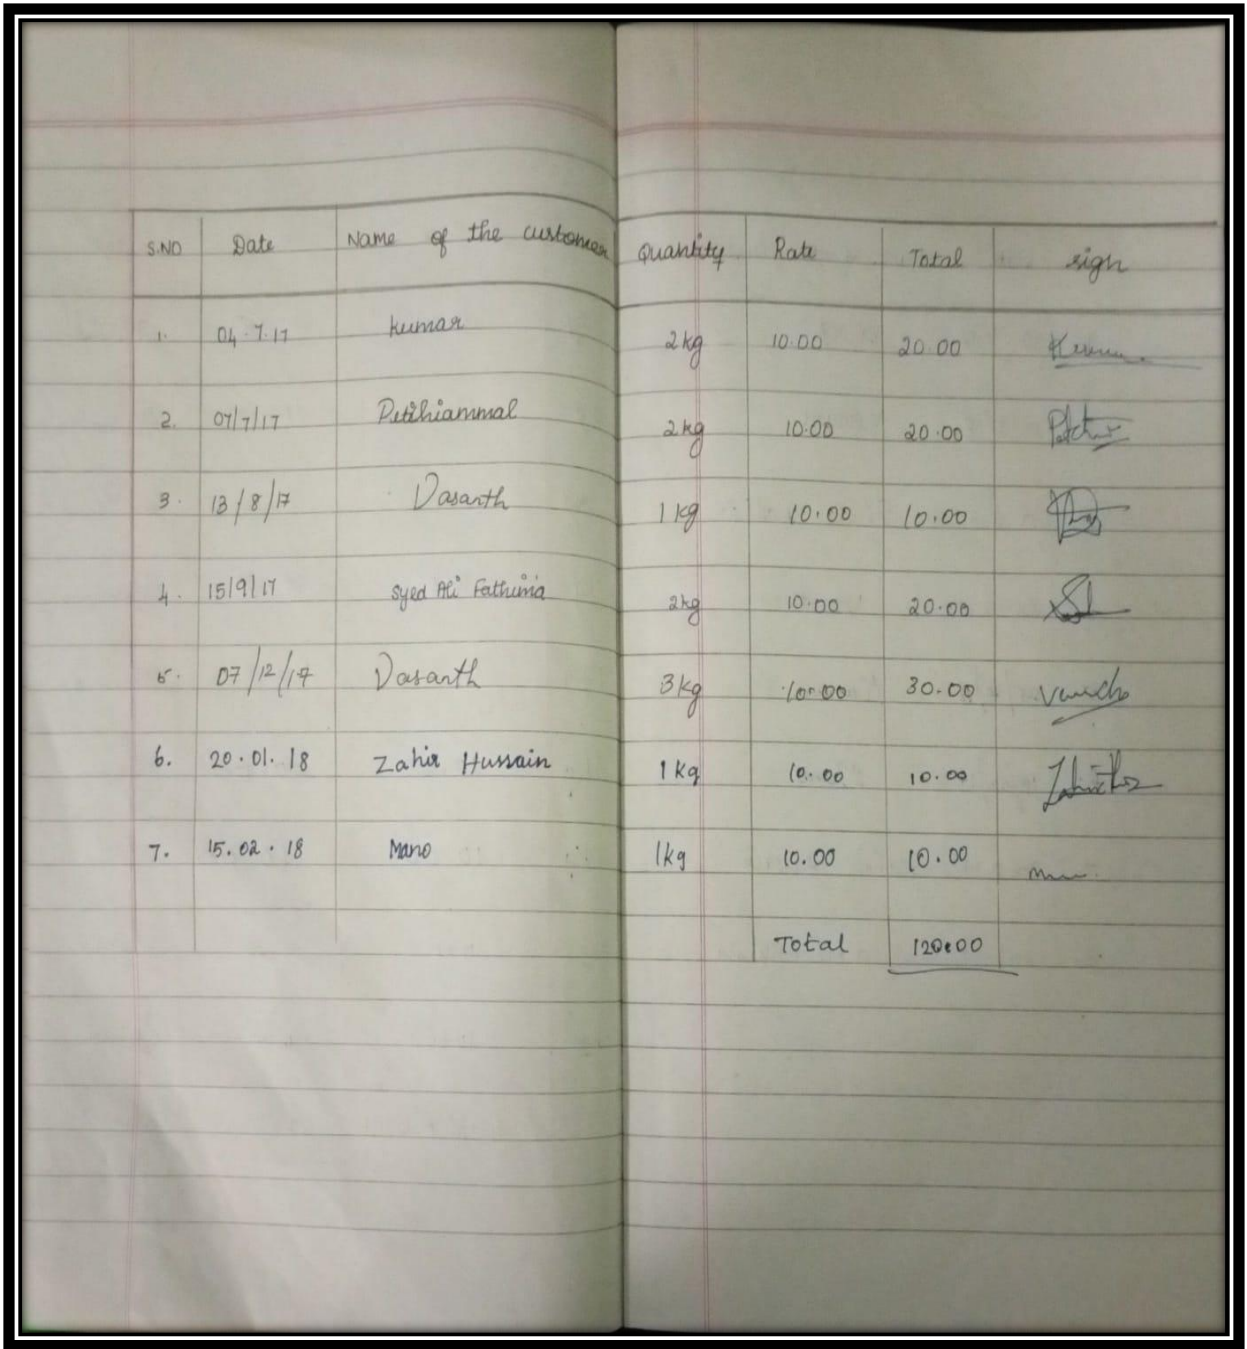 S.NO Date Name of the customer Quantity Rate Total sign
1. 04.7.17 kumar 2kg 10.00 20.00
2. 07/7/17 2kg 10.00 20.00
3. 13/8/17 Vasanth 1kg 10.00 10.00
4. 15/9/17 Syed Ali Fathima 2kg 10.00 20.00
5. 07/12/17 Vasanth 3kg 10.00 30.00
6. 20.01.18 Zahir Hussain 1kg 10.00 10.00
7. 15.02.18 Mano 1kg 10.00 10.00
Total 120.00